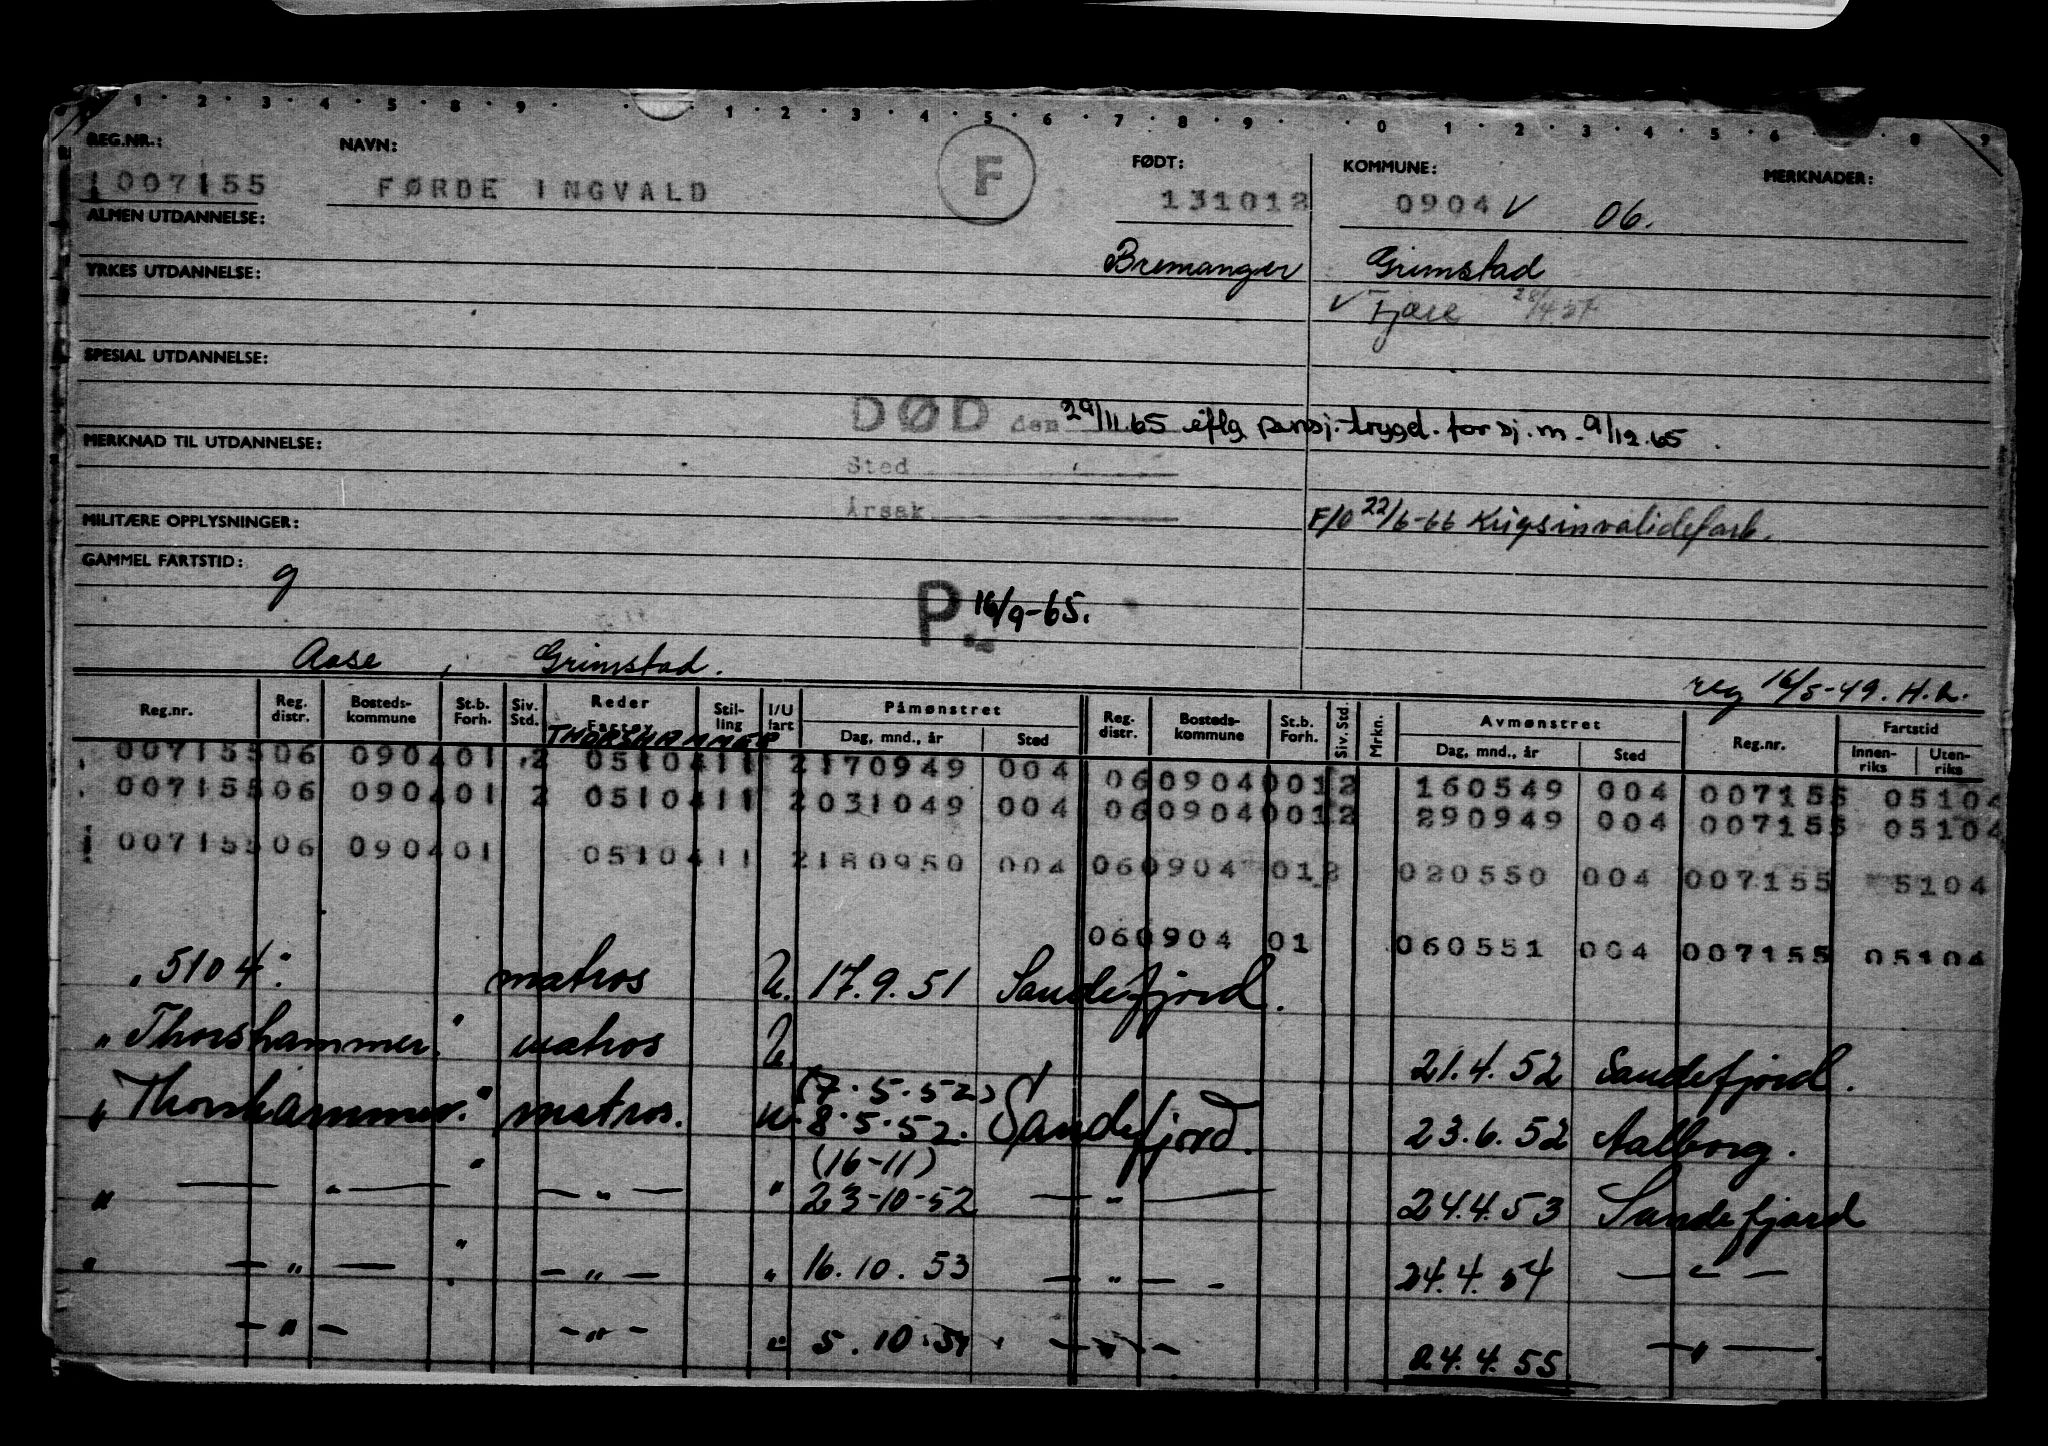 1 · 2 · 3 · 4 · 5 · 8 · 9 · · 1 · 2 · 3 · 4 · 5 · 6 · 7 · 8 · 9 · · 0 · 1 · 2 · 3 · 4 · 5 · 6 · 8 · 9
REG.NR.: NAVN: FØDT: KOMMUNE: MERKNADER:
007155 FØRDE INGVALD F 131012 0904 V 06.
ALMEN UTDANNELSE:
Bremanger Grimstad
YRKES UTDANNELSE:
V Fjære 28/4.54
SPESIAL UTDANNELSE:
DØD den 29/11.65 iflg pensj.trygd. for sj.m. 9/12.65.
MERKNAD TIL UTDANNELSE:
Sted
Årsak
F/O 22/6-66 Krigsinvalidefark.
MILITÆRE OPPLYSNINGER:
GAMMEL FARTSTID:
g
P. 16/9-65.
Aase, Grimstad.
reg 16/5-49. H.A.
Reg.nr. Reg. distr. Bosteds-kommune St.b. Forh. Siv. Std. Reder Fartøy Stil-ling I/U fart Påmønstret Dag, mnd., år Sted Reg. distr. Bosteds-kommune St.b. Forh. Siv. Std. Mrkn. Avmønstret Dag, mnd., år Sted Reg.nr. Fartstid Innen-riks Uten-riks
THORSHAMMER
007155 06 0904 01 2 0510411 2 170949 004 06 0904 001 2 160549 004 007155 05104
007155 06 0904 01 2 0510411 2 031049 004 06 0904 001 2 290949 004 007155 05104
007155 06 0904 01 0510411 2 180950 004 06 0904 01 2 020550 004 007155 5104
06 0904 01 060551 004 007155 05104
"5104" matros U. 17.9.51 Sandefjord.
"Thorshammer" matros U 21.4.52 Sandefjord.
(7.5.52)
"Thorshammer." matros. U. 8.5.52. Sandefjord. 23.6.52 Aalborg.
(16-11)
" — " — " — " — " 23-10-52 — " — 24.4.53 Sandefjord
" — " — " — " — " 16.10.53 — " — 24.4.54 — " —
— " — — " — " 5.10.54 — " — 24.4.55 — " —